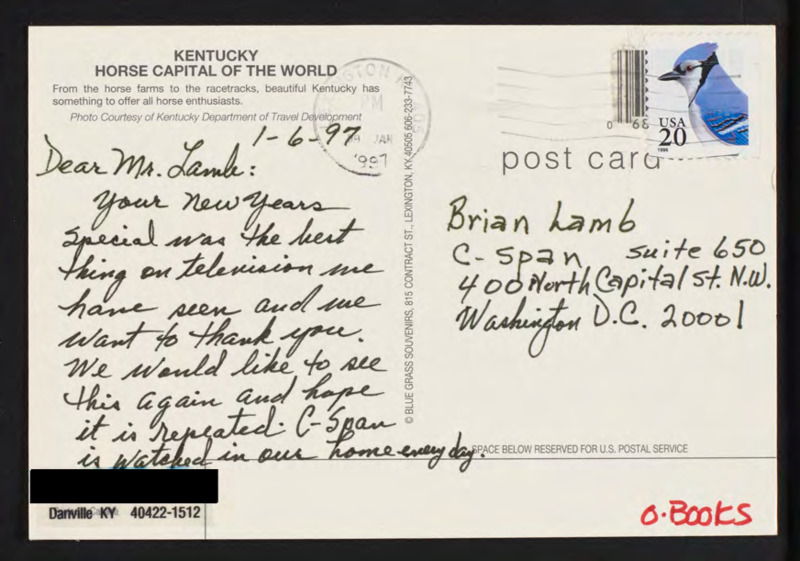 KENTUCKY
HORSE CAPITAL OF THE WORLD
From the horse farms to the racetracks, beautiful Kentucky has
something to offer all horse enthusiasts.
Photo Courtesy of Kentucky Department of Travel Development
1-6-97
Dear Mr. Lamb:
Your New Years
special was the best
thing on television we
have seen and we
want to thank you.
We would like to see
this again and hope
it is repeated. C-Span
is watched in our home every day.
Danville KY 40422-1512
© BLUE GRASS SOUVENIRS, 815 CONTRACT ST., LEXINGTON, KY 40505 606-233-7743
PM
JAN
1997
USA
20
1996
post card
Brian Lamb
C-Span suite 650
400 North Capital St. N.W.
Washington D.C. 20001
SPACE BELOW RESERVED FOR U.S. POSTAL SERVICE
O-BOOKS